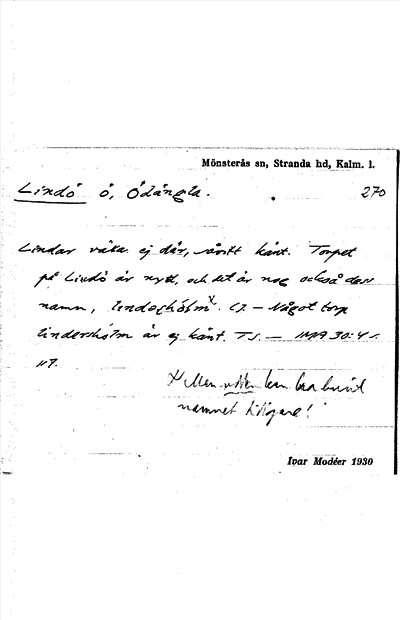 Mönsterås sn, Stranda hd, Kalm. l.
Lindö ö, Ödängla. 270
Lindar växa ej där, såvitt känt. Torpet
på Lindö är nytt, och det är nog också dess
namn, lindesholm x. CJ. – Något torp
lindersholm är ej känt. TS. — 30:4 s.
117.
x Men udden kan ha burit
namnet tidigare!
Ivar Modéer 1930